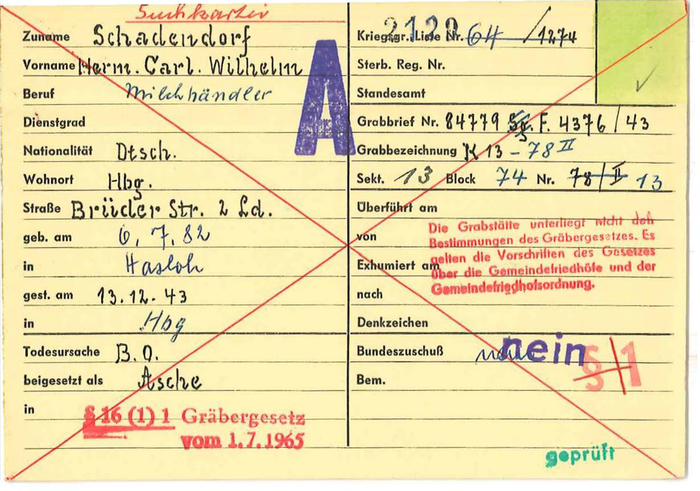 Suchkartei
Zuname Schadendorf
Vorname Herm. Carl. Wilhelm
Beruf Milchhändler
Dienstgrad
Nationalität Dtsch.
Wohnort Hbg.
Straße Brüder Str. 2 Ld.
geb. am 6.7.82
in Hasloh
gest. am 13.12.43
in Hbg
Todesursache B.O.
beigesetzt als Asche
in
§ 16 (1) 1 Gräbergesetz
vom 1.7.1965
A
Kriegsgr. Liste Nr. 64/1274
Sterb. Reg. Nr.
Standesamt
Grabbrief Nr. 84779 F. 4376/43
Grabbezeichnung K 13-78 II
Sekt. 13 Block 74 Nr. 78/II 13
Überführt am
von
Exhumiert am
nach
Die Grabstätte unterliegt nicht den
Bestimmungen des Gräbergesetzes. Es
gelten die Vorschriften des Gesetzes
über die Gemeindefriedhöfe und der
Gemeindefriedhofsordnung.
Denkzeichen
Bundeszuschuß nein
§ 1
Bem.
geprüft